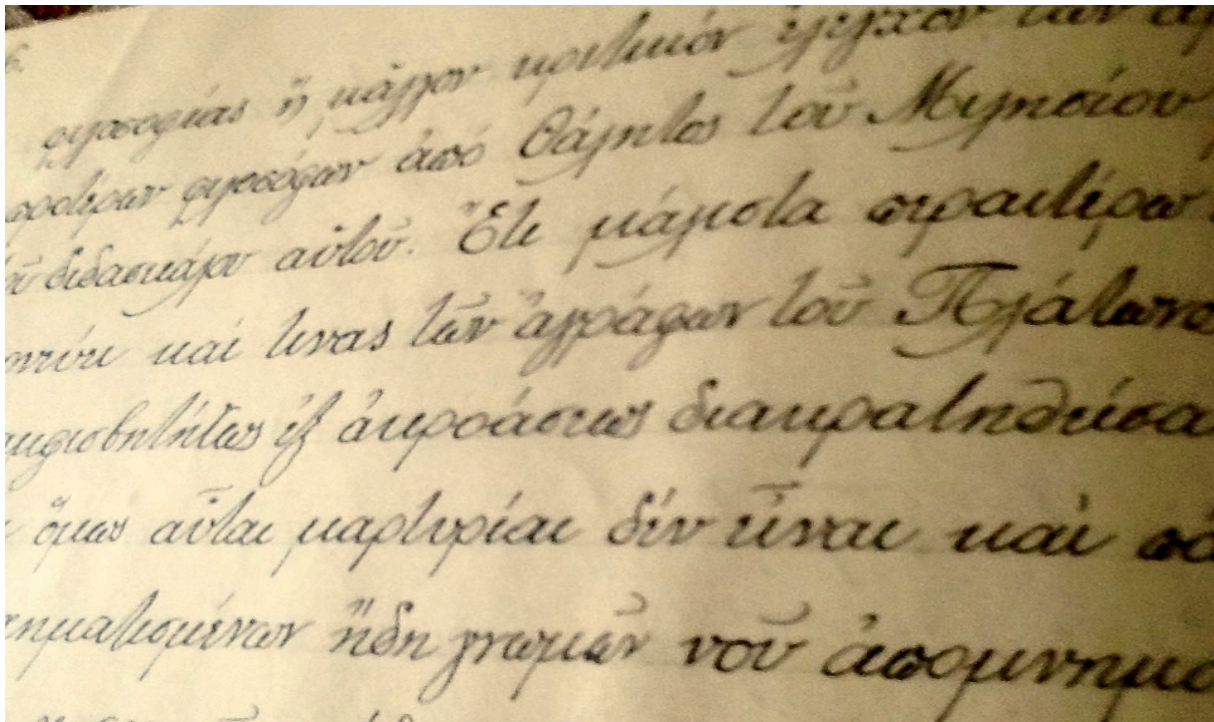 6.
φιλοσοφίας ἤ μᾶλλον κριτικόν ἔλεγχον τῶν
προτέρων φιλοσόφων ἀπό Θάλητος τοῦ Μιλησίου
τοῦ διδασκάλου αὐτοῦ. Ἔτι μάλιστα περαιτέρω
καί τινας τῶν ἀγράφων τοῦ Πλάτωνο
αμφισβητήτως ἐξ ἀκροάσεως διακρατηθείσα
ὅμως αὗται μαρτυρίαι δέν εἶναι καὶ
χηματισμένων ἤδη γνωμῶν τοῦ ἀπομνημο